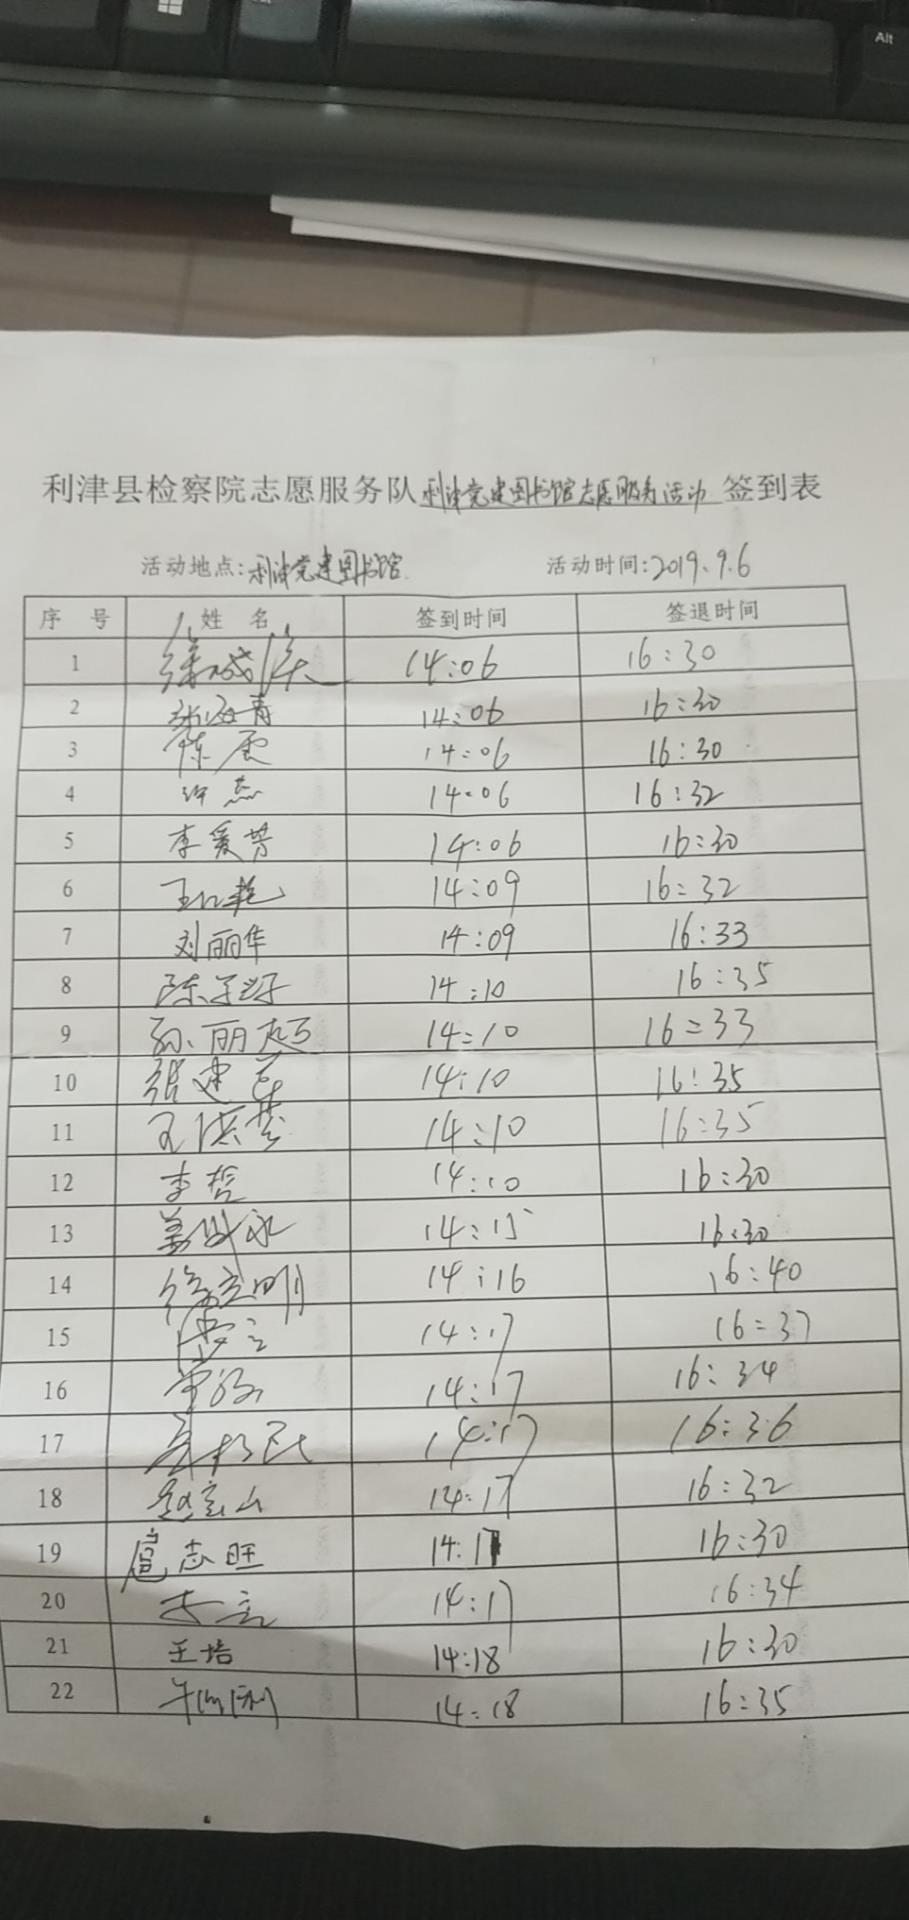 Alt
利津县检察院志愿服务队利津党建图书馆志愿服务活动签到表
活动地点:利津党建图书馆 活动时间:2019.9.6
序 号 姓 名 签到时间 签退时间
1 14:06 16:30
2 张海青 14:06 16:30
3 陈 14:06 16:30
4 许杰 14:06 16:32
5 李爱芳 14:06 16:30
6 王红艳 14:09 16:32
7 刘丽华 14:09 16:33
8 陈 14:10 16:35
9 孙丽超 14:10 16:33
10 张建 14:10 16:35
11 王洪 14:10 16:35
12 李哲 14:10 16:30
13 14:15 16:30
14 徐立明 14:16 16:40
15 14:17 16:37
16 14:17 16:34
17 14:17 16:36
18 赵宝山 14:17 16:32
19 扈志旺 14:17 16:30
20 14:17 16:34
21 王培 14:18 16:30
22 14:18 16:35